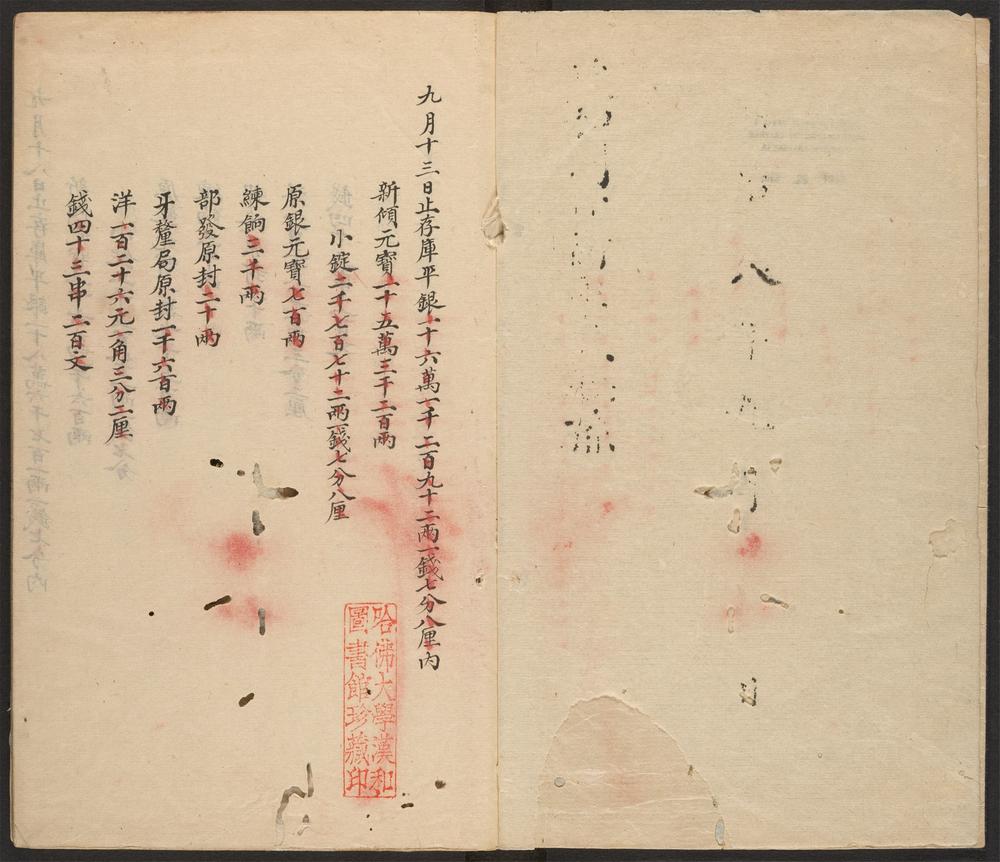 九月十三日止存庫平銀一十六萬一千二百九十二兩一錢七分八厘內
新傾元寶一十五萬三千二百兩
小錠二千七百七十二兩一錢七分八厘
原銀元寶七百兩
練餉三千兩
部發原封二十兩
牙釐局原封一千六百兩
洋一百二十六元一角三分二厘
錢四十三串二百文
哈佛大學漢和
圖書館珍藏印